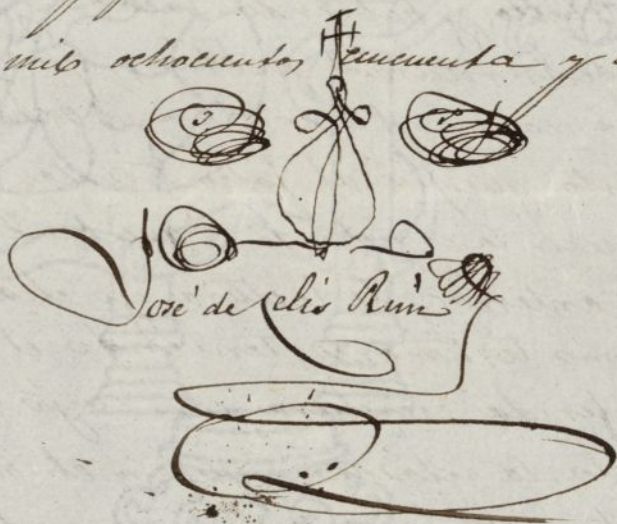 mil ochocientos cincuenta y
José de Celis Ruiz